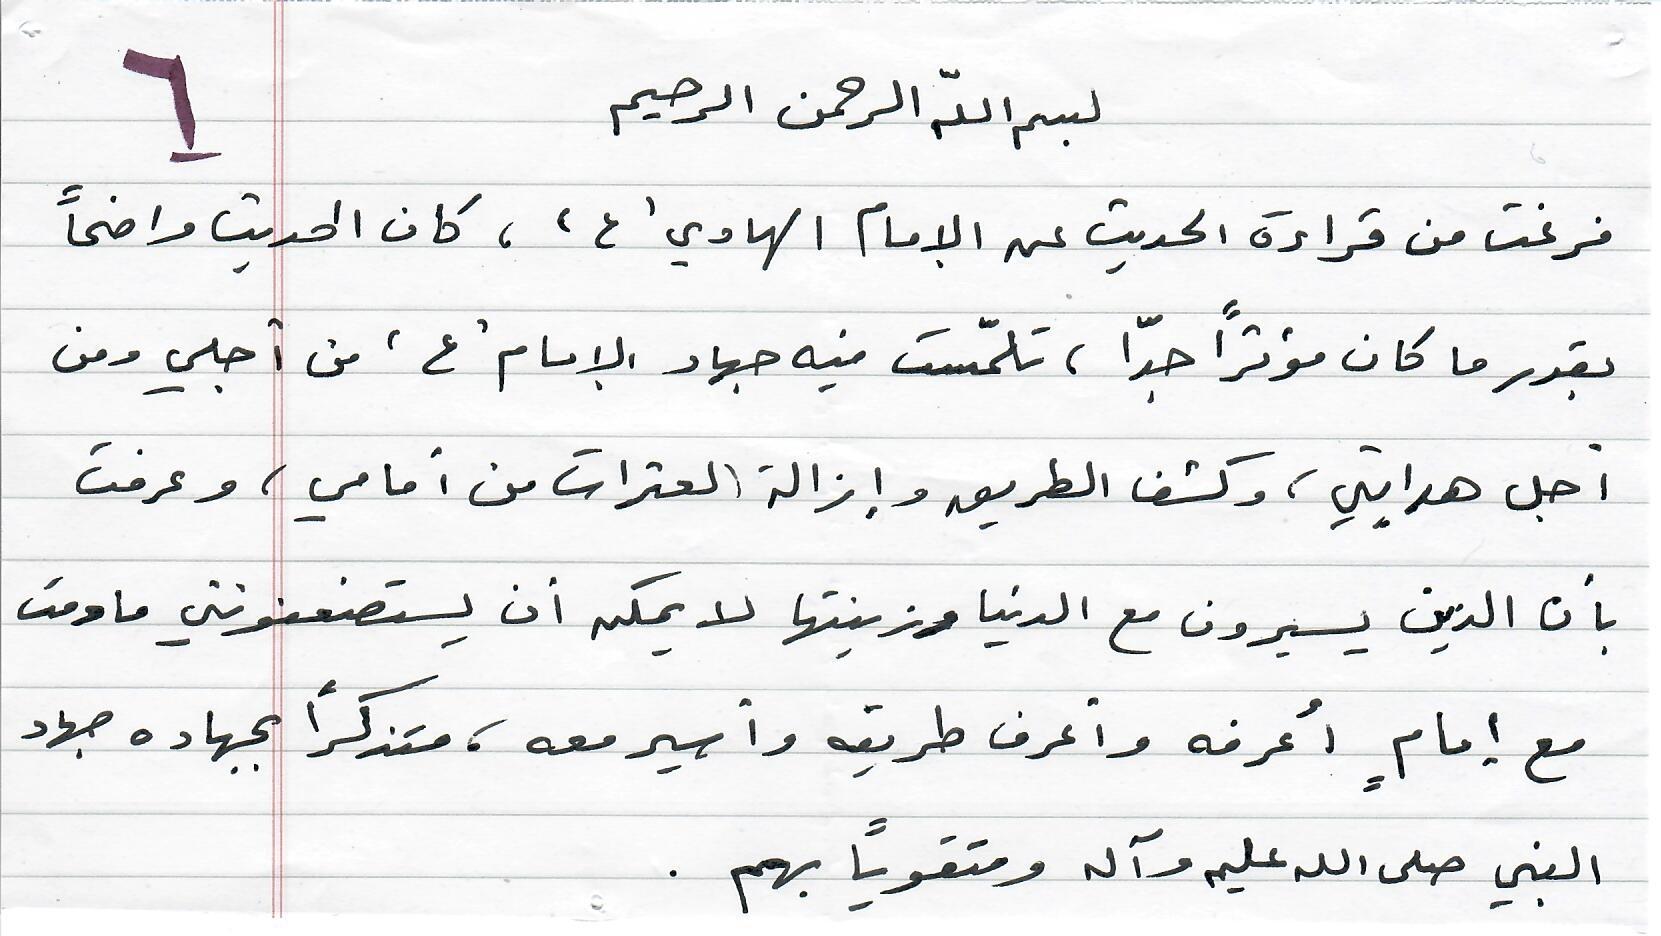 ٦
بسم اللّه الرحمن الرحيم
فرغت من قراءة الحديث عن الإمام الهادي ‘ع’ ، كان الحديث واضحاً
بقدر ما كان مؤثراً جدّا ، تلمّست فيه جهاد الإمام ‘ع’ من أجلي ومن
أجل هدايتي ، وكشف الطريق وإزالة العثرات من أمامي ، وعرفت
بأن الذين يسيرون مع الدنيا وزينتها لا يمكن أن يستضعفونني ما دمت
مع إمامٍ أعرفه وأعرف طريقه وأسير معه ، متذكراً بجهاده جهاد
النبي صلى الله عليه وآله ومتقوياً بهم .